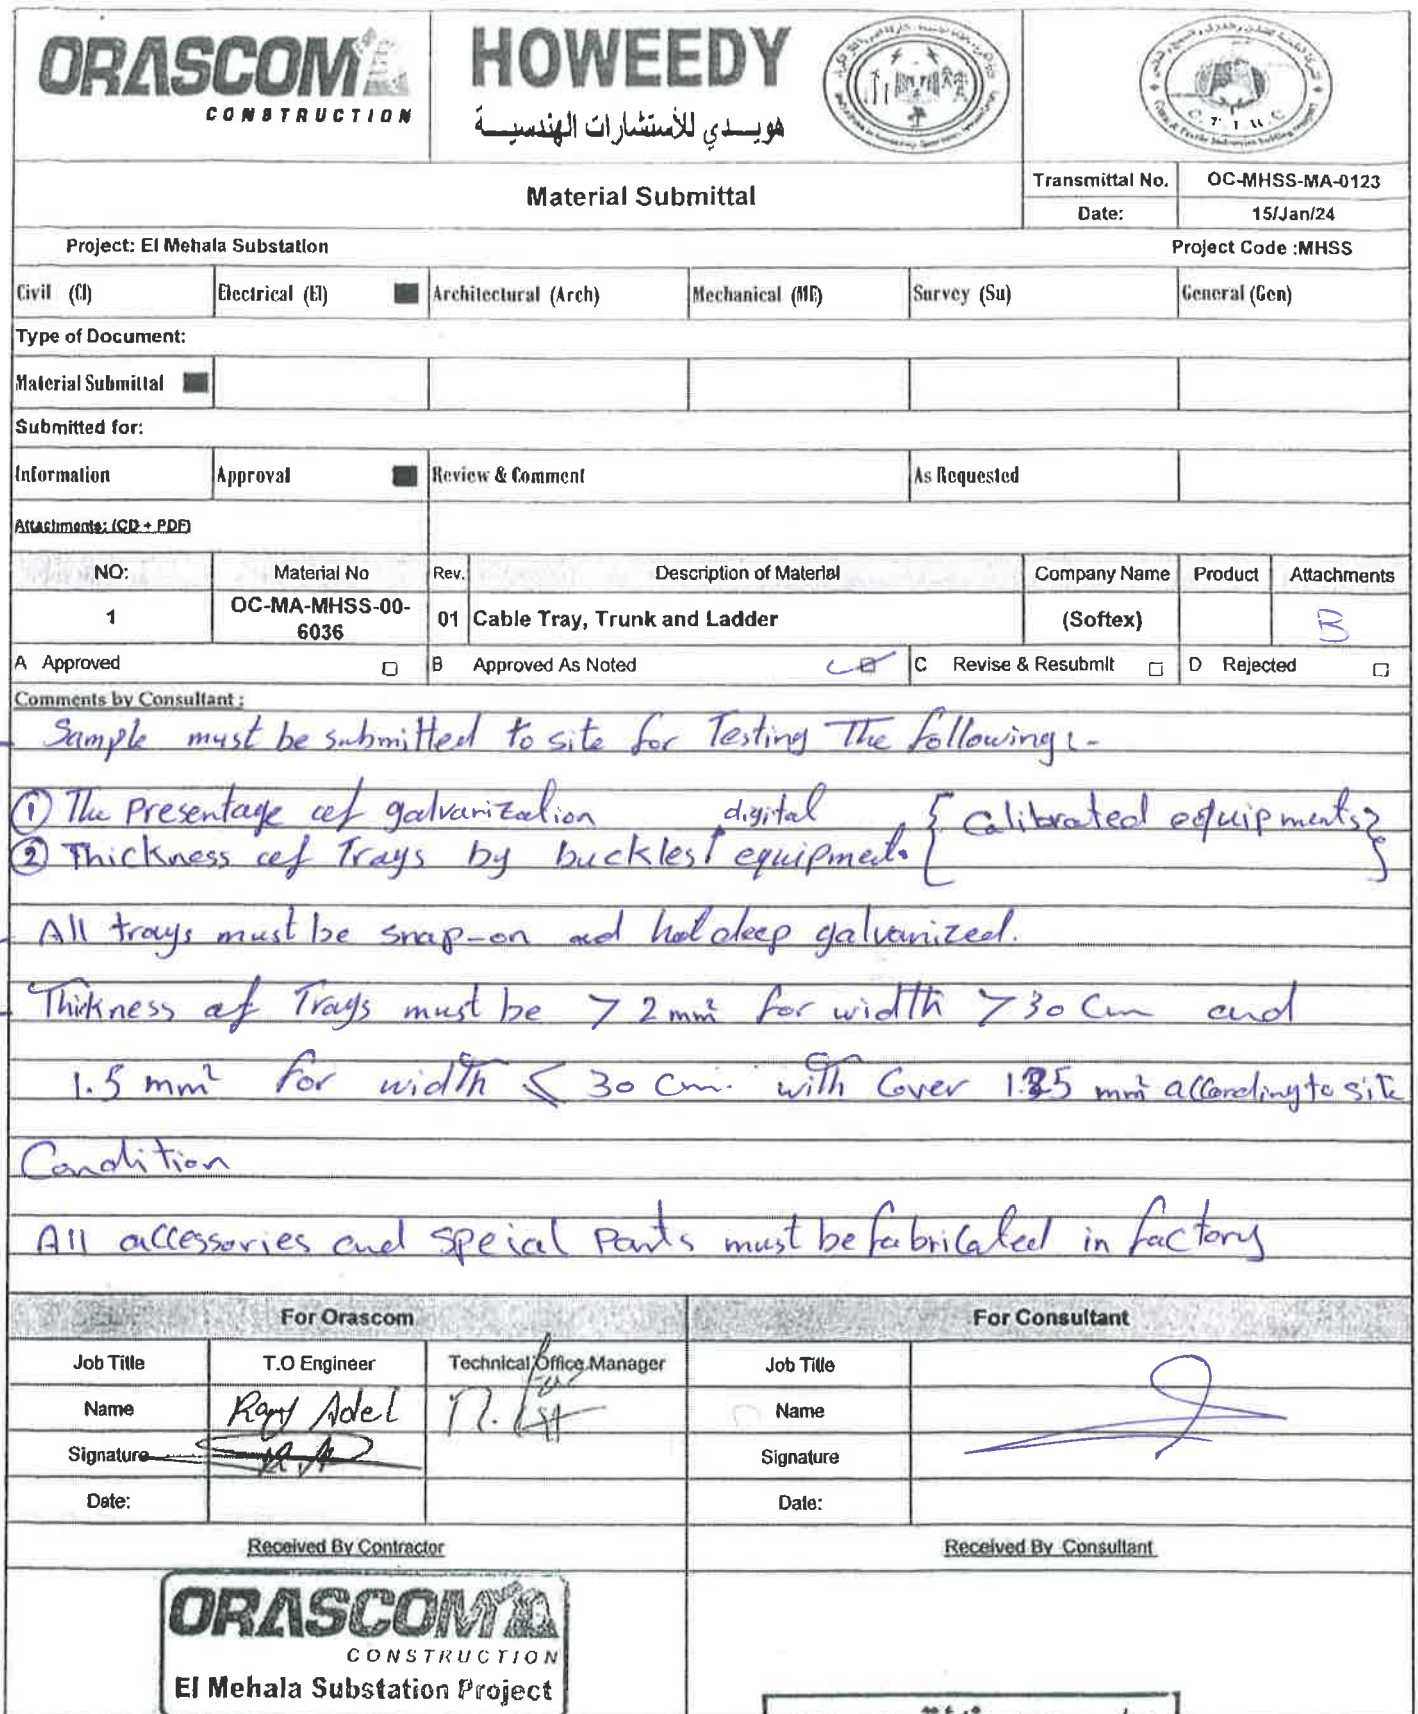 ORASCOM
CONSTRUCTION
HOWEEDY
هويدي للأستشارات الهندسية
C T I H C
Material Submittal
Transmittal No. OC-MHSS-MA-0123
Date: 15/Jan/24
Project: El Mehala Substation Project Code :MHSS
Civil (CI) Electrical (El) Architectural (Arch) Mechanical (ME) Survey (Su) General (Gen)
Type of Document:
Material Submittal
Submitted for:
Information Approval Review & Comment As Requested
Attachments: (CD + PDF)
NO: Material No Rev. Description of Material Company Name Product Attachments
1 OC-MA-MHSS-00-6036 01 Cable Tray, Trunk and Ladder (Softex) B
A Approved B Approved As Noted C Revise & Resubmit D Rejected
Comments by Consultant :
- Sample must be submitted to site for Testing The following :-
① The Presentage of galvanization
② Thickness of Trays by buckles digital equipment. { Calibrated equipments }
- All trays must be snap-on and hot deep galvanized.
- Thickness of Trays must be > 2 mm² for width > 30 Cm and
1.5 mm² for width ≤ 30 Cm. with Cover 1.25 mm² according to site
Condition
All accessories and speical Parts must be fabricated in factory
For Orascom For Consultant
Job Title T.O Engineer Technical Office Manager Job Title
Name Adel Name
Signature Signature
Date: Date:
Received By Contractor Received By Consultant
ORASCOM
CONSTRUCTION
El Mehala Substation Project